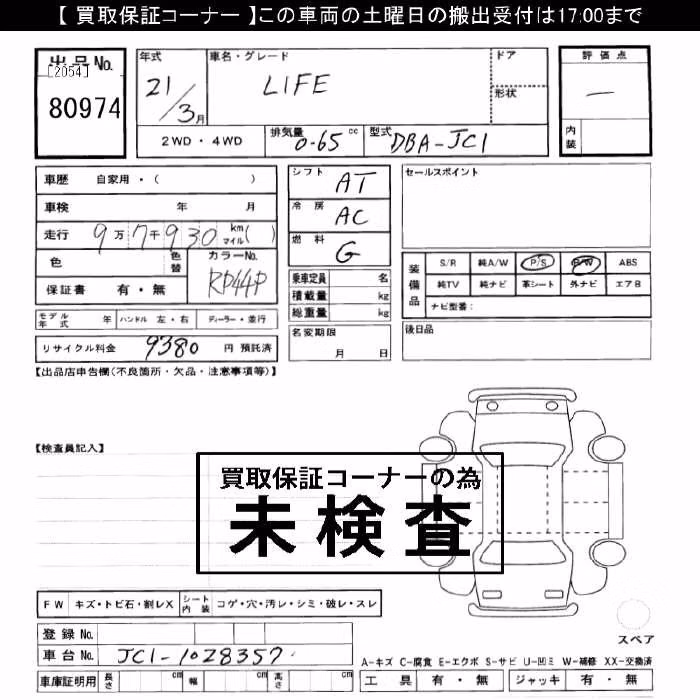 【 買取保証コーナー 】この車両の土曜日の搬出受付は17:00まで
出品No.
[2054]
80974
年式
21/3月
車名・グレード
LIFE
ドア
形状
評価点
—
内装
2WD・4WD
排気量 0.65 cc
型式 DBA-JC1
車歴 自家用・( )
車検 年 月
走行 9万7千930 km マイル( )
色 色替
カラーNo. RP44P
保証書 有・無
シフト AT
冷房 AC
燃料 G
乗車定員 名
積載量 kg
総重量 kg
セールスポイント
装備品
S/R 純A/W P/S P/W ABS
純TV 純ナビ 革シート 外ナビ エアB
ナビ型番：
モデル年式 年 ハンドル 左・右 ディーラー・並行
名変期限 月 日
後日品
リサイクル料金 9380 円 預託済
【出品店申告欄(不良箇所・欠品・注意事項等)】
【検査員記入】
買取保証コーナーの為
未検査
FW キズ・トビ石・割レX シート内装 コゲ・穴・汚レ・シミ・破レ・スレ
登録No.
車台No. JC1-1028357
スペア
A-キズ C-腐食 E-エクボ S-サビ U-凹ミ W-補修 XX-交換済
車庫証明用 長さ cm 幅 cm 高さ cm
工具 有・無 ジャッキ 有・無